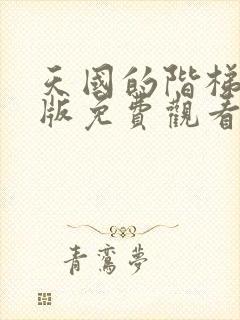 天國的階梯
版免費觀看
青鸞夢